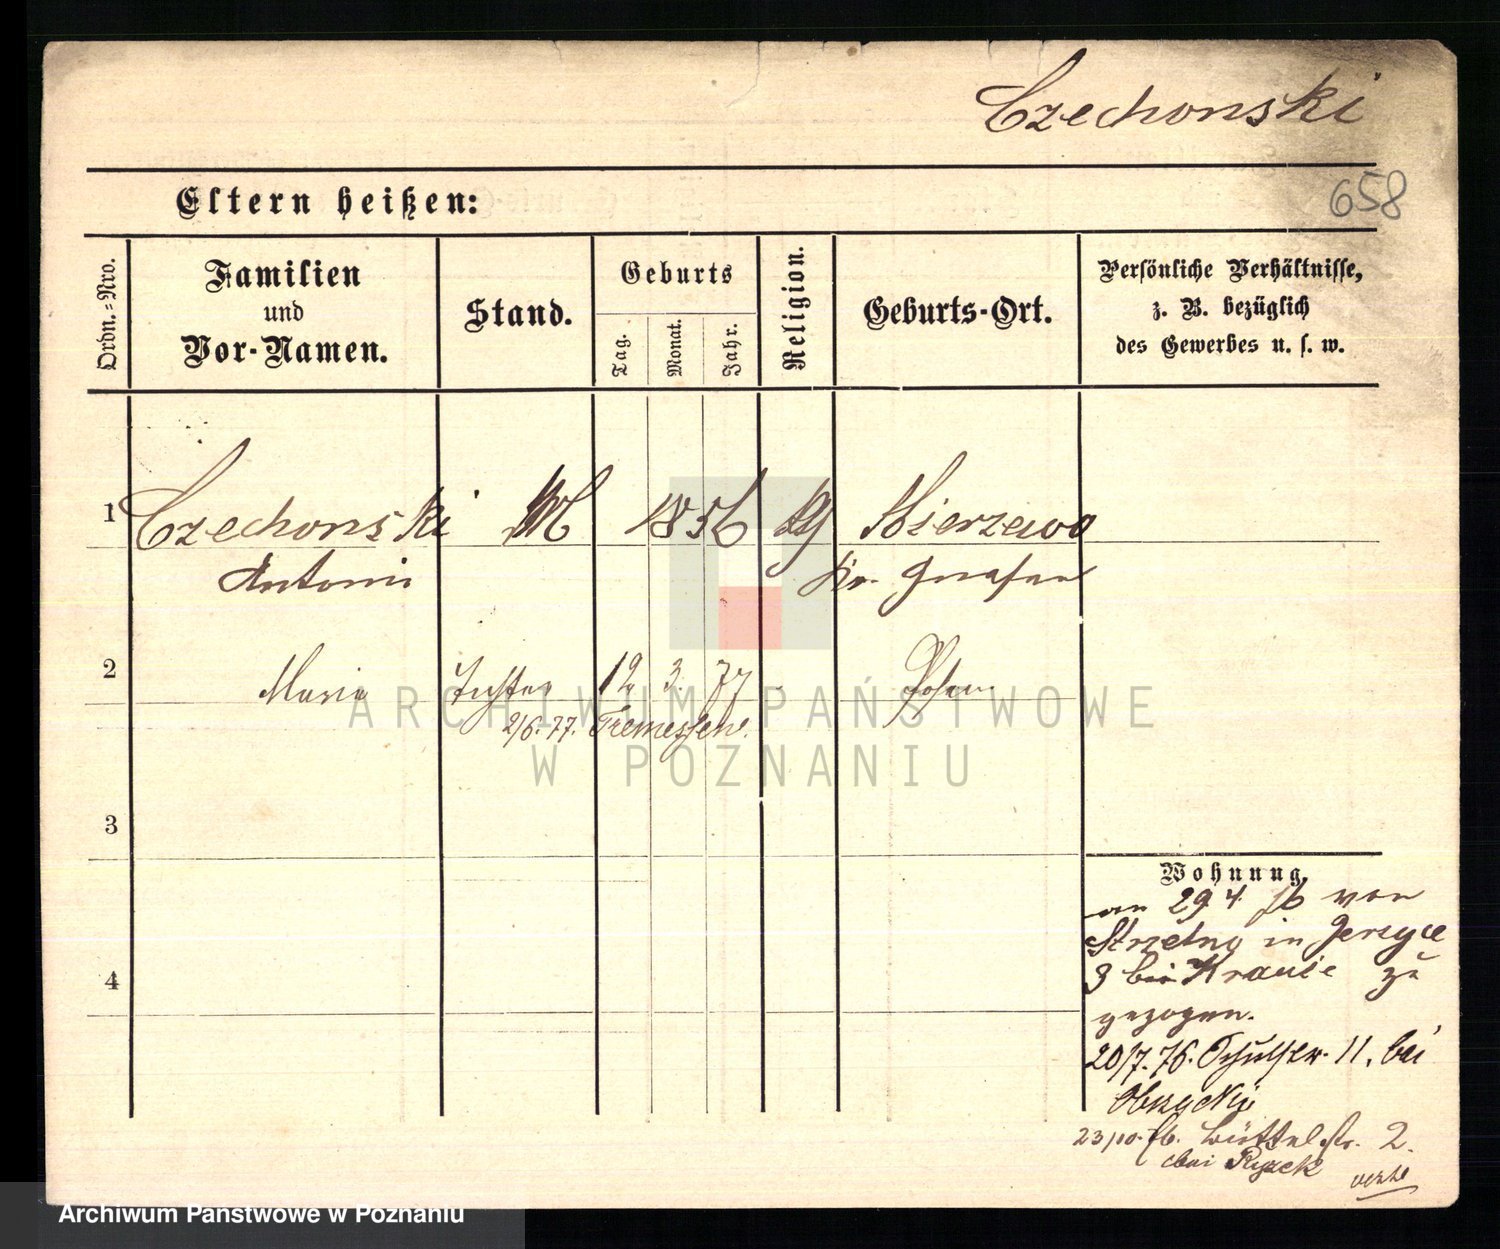 Czechonski
658
Eltern heißen:
Ordn.-Nro.
Familien
und
Vor-Namen.
Stand.
Geburts
Tag.
Monat.
Jahr.
Religion.
Geburts-Ort.
Persönliche Verhältnisse,
z. B. bezüglich
des Gewerbes u. s. w.
1 Czechonski 1856 Mierzewo
Antoni Kr. Gnesen
2 Maria Tochter 12 3. 77 Posen
2/6. 77. Tremessen.
3
4
Wohnung.
am 29 4 76 von
Strzelno in Jerzyce
3 bei Krause zu
gezogen.
20/7. 76. Schulstr. 11. bei
Obrzycki
23/10. 76. Büttelstr. 2.
bei Ryzek
ARCHIWUM PAŃSTWOWE
W POZNANIU
Archiwum Państwowe w Poznaniu